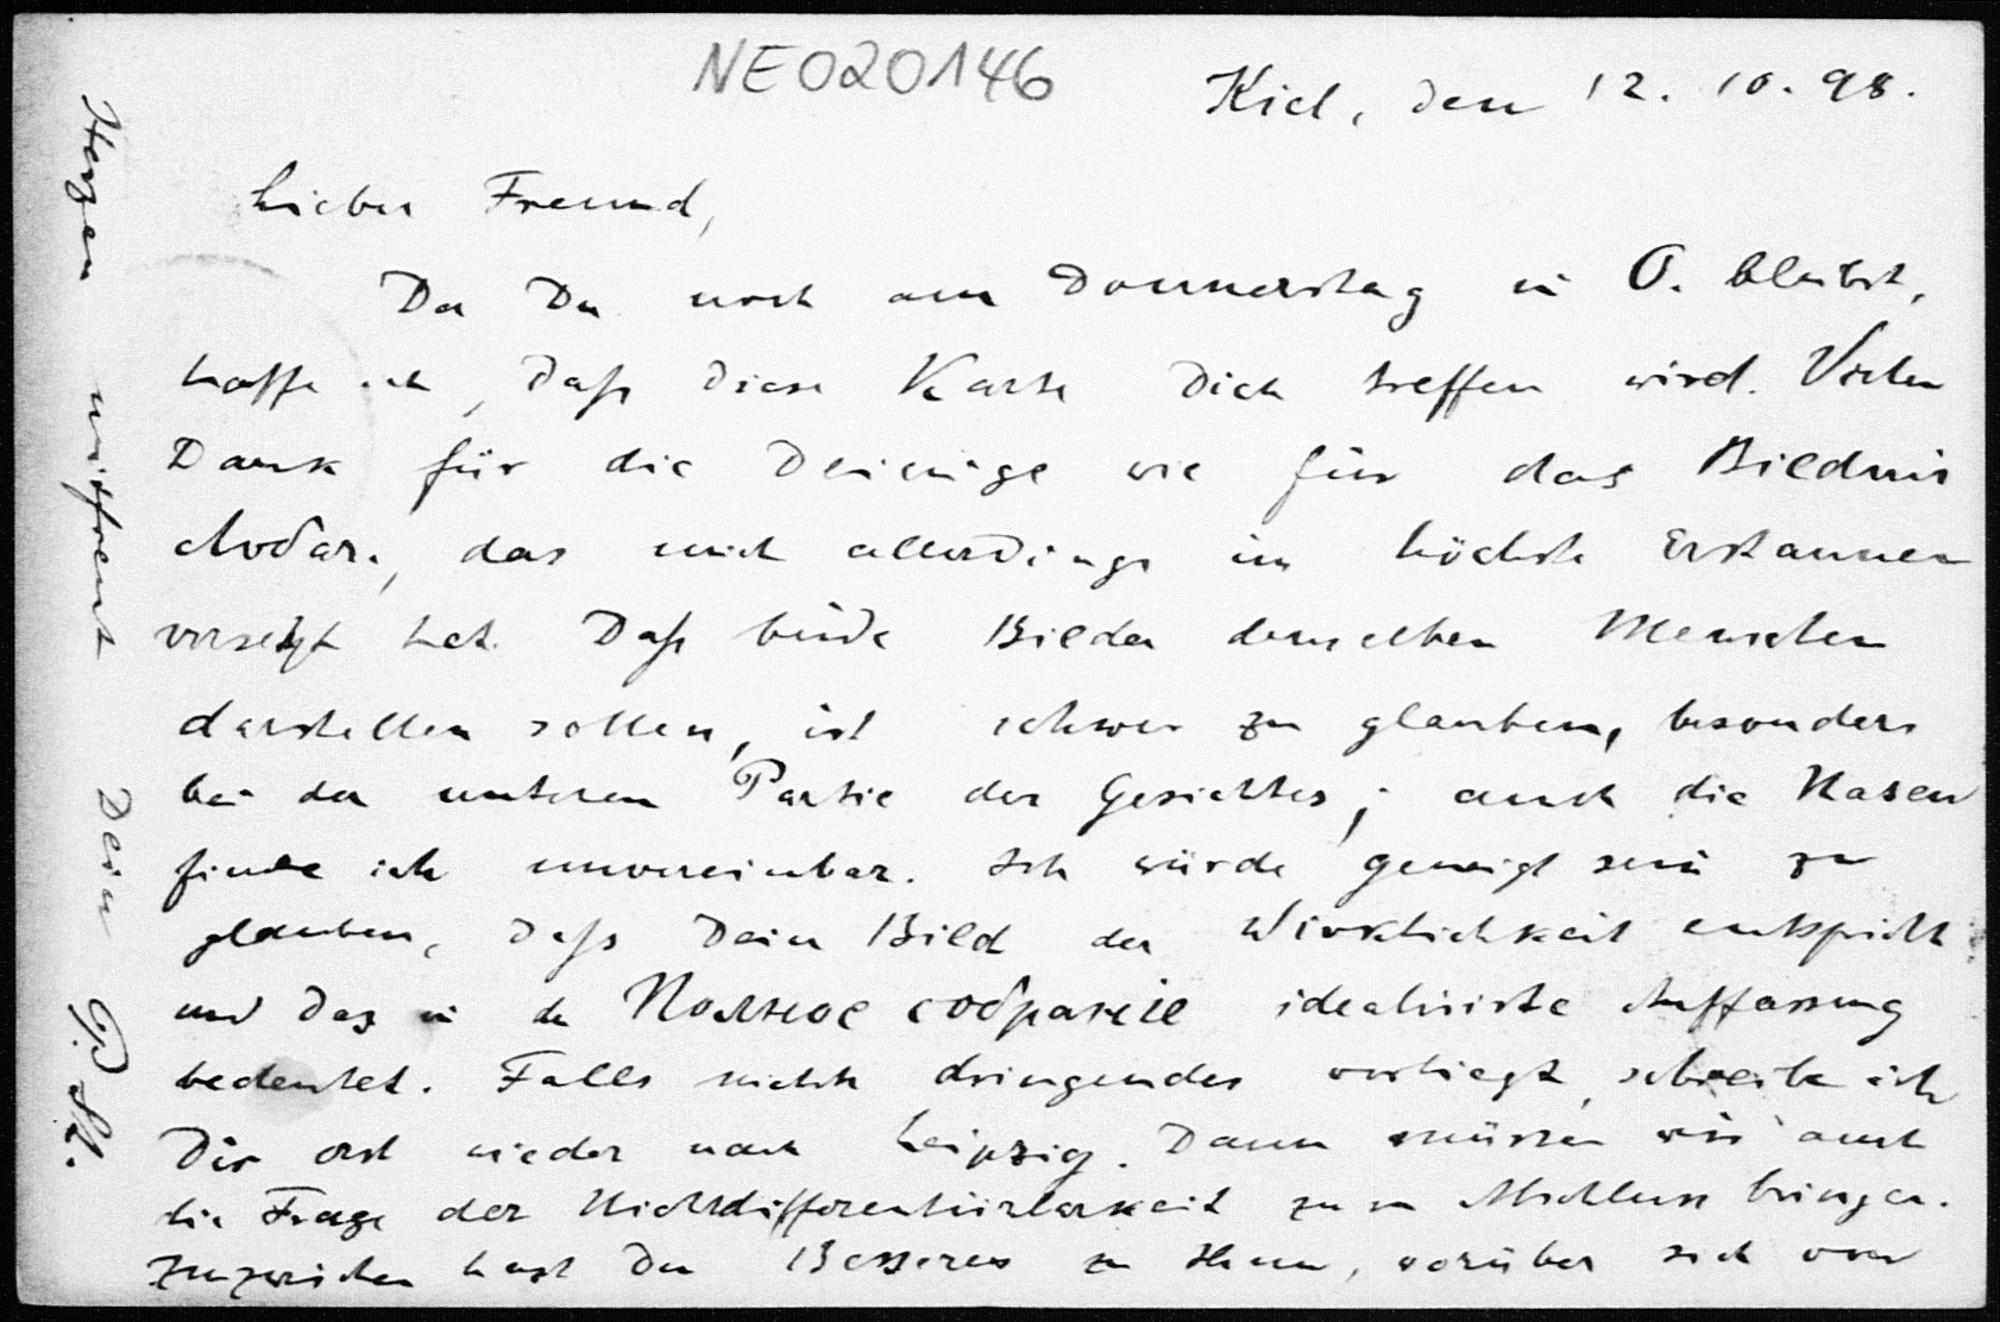 NE020146
Kiel, den 12. 10. 98.
Lieber Freund,
Da Du noch am Donnerstag in O. bleibst,
hoffe ich, daß diese Karte Dich treffen wird. Vielen
Dank für die Deinige wie für das Bildnis
Abels, das mich allerdings in höchste Erstaunen
versetzt hat. Daß beide Bilder denselben Menschen
darstellen sollen, ist schwer zu glauben, besonders
bei der unteren Partie des Gesichtes; auch die Nasen
finde ich unvereinbar. Ich würde geneigt sein zu
glauben, daß Dein Bild der Wirklichkeit entspricht
und das in der Полное собрание idealisirte Auffassung
bedeutet. Falls nichts dringendes vorliegt, schreibe ich
Dir erst wieder nach Leipzig. Dann müssen wir auch
die Frage der Nichtdifferentiirbarkeit zum Abschluss bringen.
Inzwischen hast Du Besseres zu thun, worüber sich von
Herzen mitfreut Dein P. St.